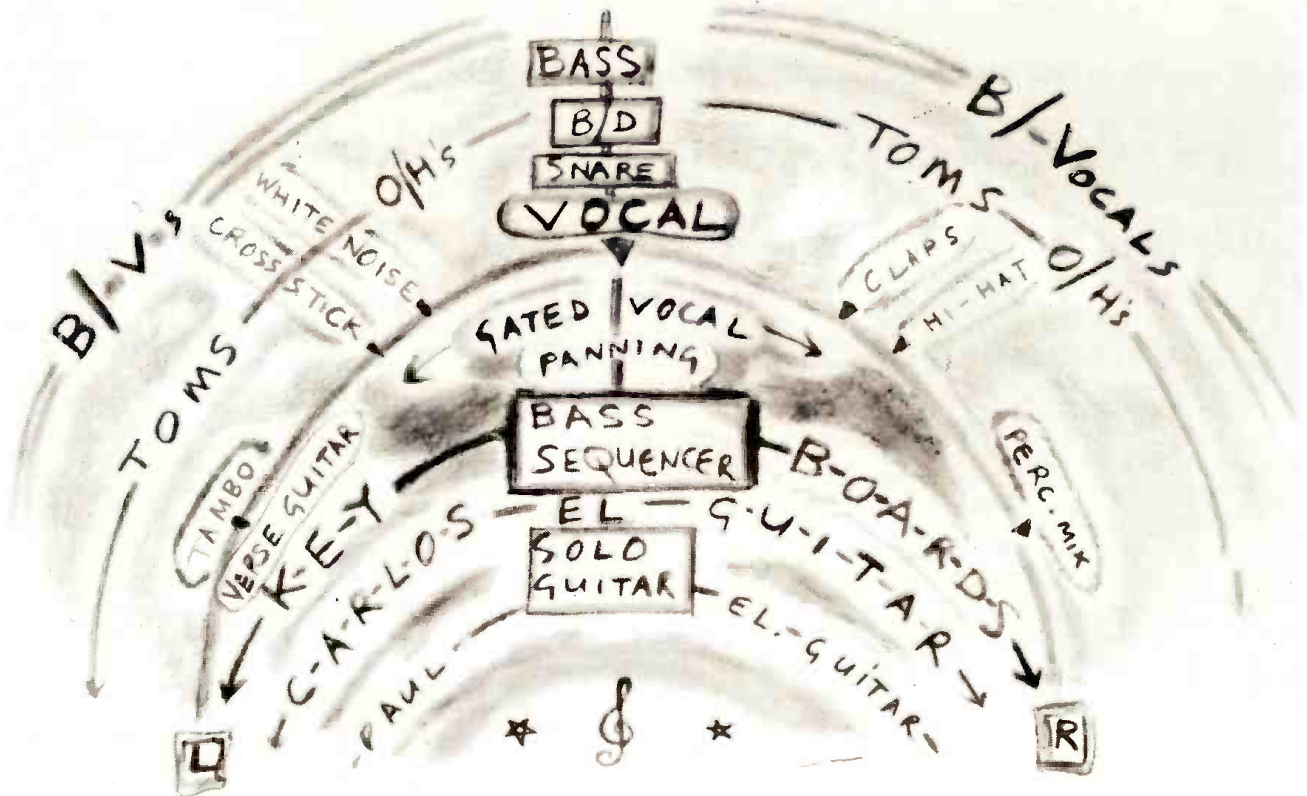 BASS
B/D
SNARE
VOCAL
B/-V-s
B/-VOCALS
O/H's
TOMS
TOMS
O/H's
WHITE NOISE
CROSS STICK
CLAPS
HI-HAT
GATED VOCAL
PANNING
BASS
SEQUENCER
TAMBO
VERSE GUITAR
PERC. MIX
K-E-Y
B-O-A-R-D-S
C-A-R-L-O-S - EL - G-U-I-T-A-R
SOLO
GUITAR
PAUL - EL.-GUITAR
L
R